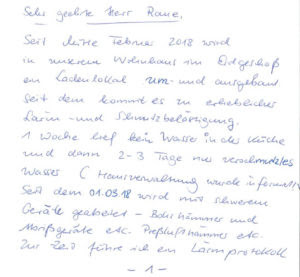 Sehr geehrter Herr Raue,
Seit Mitte Februar 2018 wird
in unserem Wohnhaus im Erdgeschoß
ein Ladenlokal um- und ausgebaut
Seit dem kommt es zu erheblicher
Lärm- und Schmutzbelästigung.
1 Woche lief kein Wasser in der Küche
und dann 2-3 Tage nur verschmutztes
Wasser (Hausverwaltung wurde informiert)
Seit dem 01.03.18 wird mit schwerem
Geräte gearbeitet - Bohrhämmer und
etc. Preßlufthämmer etc.
Zur Zeit führe ich ein Lärmprotokoll
- 1 -